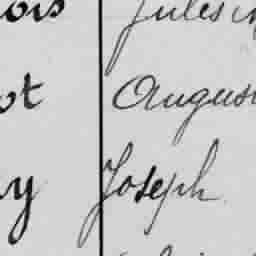 ois Jules
ot Augus
y Joseph